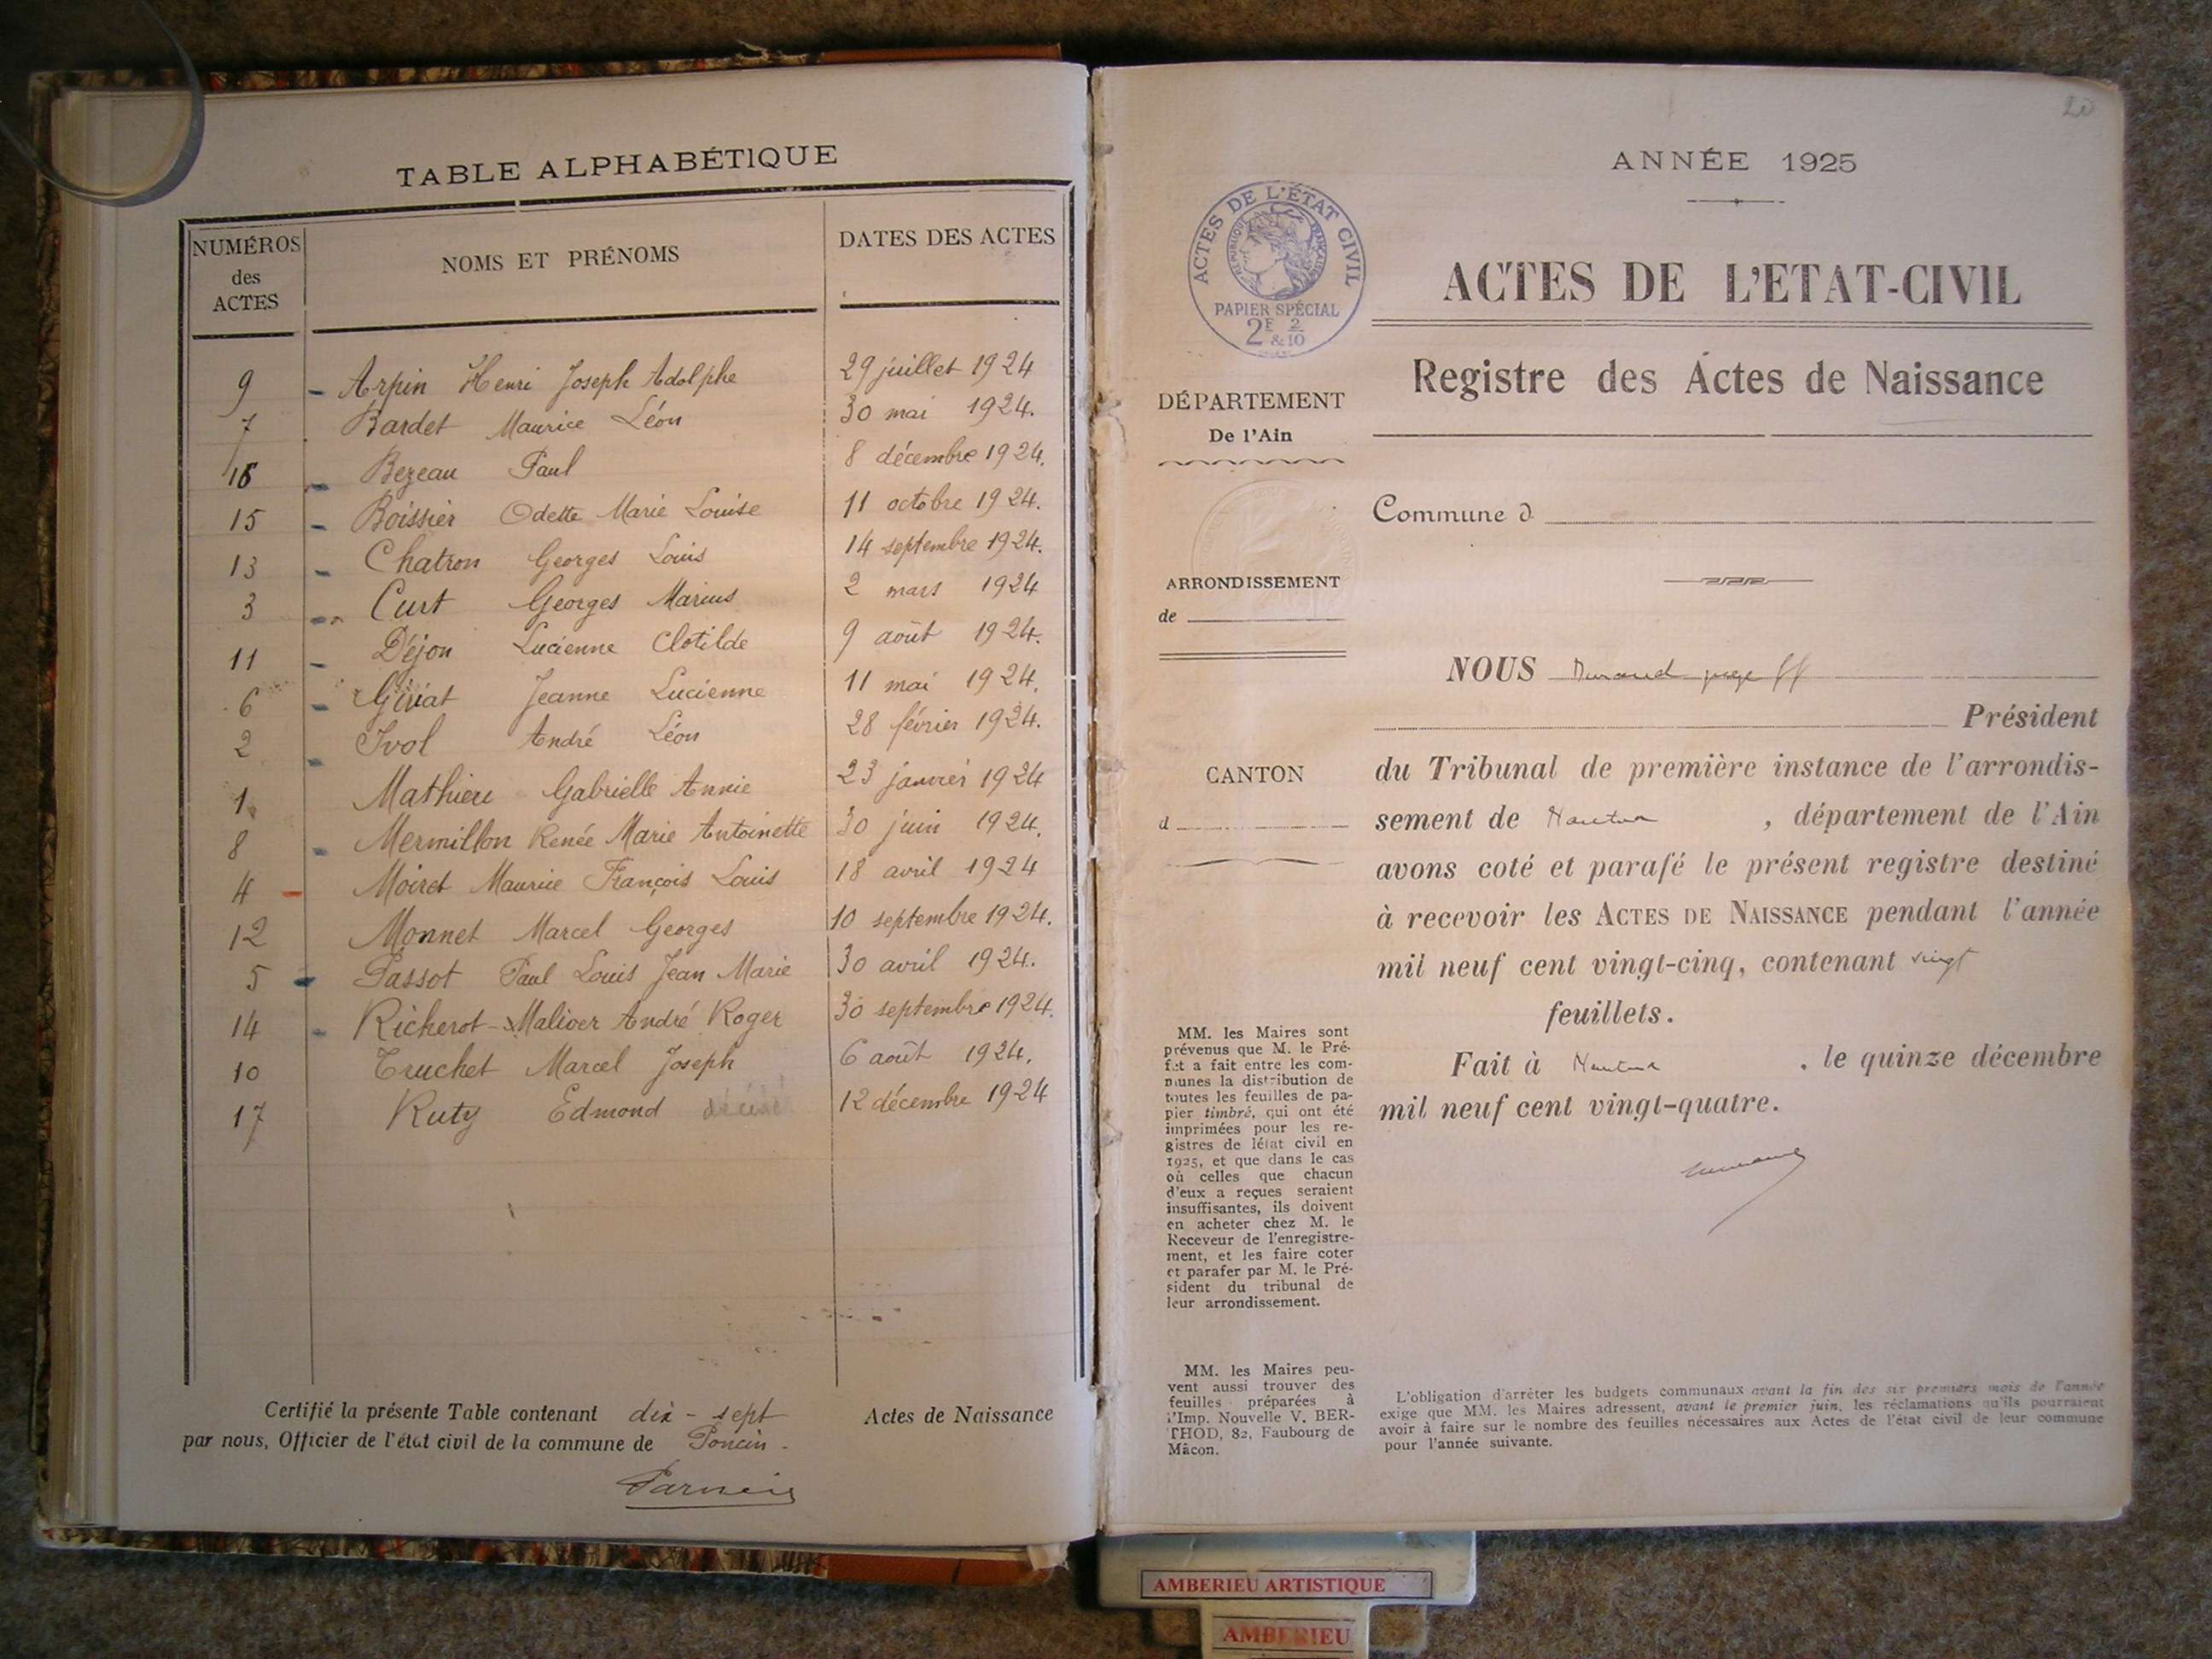 TABLE ALPHABÉTIQUE
NUMÉROS des ACTES
NOMS ET PRÉNOMS
DATES DES ACTES
9 - Arpin Henri Joseph Adolphe 29 juillet 1924
7 Bardet Maurice Léon 30 mai 1924.
16 - Bezeau Paul 8 décembre 1924.
15 - Boissier Odette Marie Louise 11 octobre 1924.
13 - Chatron Georges Louis 14 septembre 1924.
3 - Curt Georges Marius 2 mars 1924
11 - Déjon Lucienne Clotilde 9 août 1924.
6 - Giriat Jeanne Lucienne 11 mai 1924.
2 - Ivol André Léon 28 février 1924.
1 Mathieu Gabrielle Annie 23 janvier 1924
8 - Mermillon Renée Marie Antoinette 30 juin 1924.
4 - Moiret Maurice François Louis 18 avril 1924
12 Monnet Marcel Georges 10 septembre 1924.
5 - Passot Paul Louis Jean Marie 30 avril 1924.
14 - Richerot-Maliver André Roger 30 septembre 1924.
10 Truchet Marcel Joseph 6 août 1924.
17 Ruty Edmond décédé 12 décembre 1924
Certifié la présente Table contenant dix-sept Actes de Naissance
par nous, Officier de l'état civil de la commune de Poncin.
20
ANNÉE 1925
ACTES DE L'ÉTAT CIVIL
RÉPUBLIQUE FRANÇAISE
PAPIER SPÉCIAL
2F & 2/10
ACTES DE L'ETAT-CIVIL
Registre des Actes de Naissance
DÉPARTEMENT
De l'Ain
Commune d
ARRONDISSEMENT
de
CANTON
d
NOUS Durand juge ff
Président
du Tribunal de première instance de l'arrondis-
sement de Nantua, département de l'Ain
avons coté et parafé le présent registre destiné
à recevoir les ACTES DE NAISSANCE pendant l'année
mil neuf cent vingt-cinq, contenant vingt
feuillets.
Fait à Nantua. le quinze décembre
mil neuf cent vingt-quatre.
MM. les Maires sont
prévenus que M. le Pré-
fet a fait entre les com-
munes la distribution de
toutes les feuilles de pa-
pier timbré, qui ont été
imprimées pour les re-
gistres de létat civil en
1925, et que dans le cas
où celles que chacun
d'eux a reçues seraient
insuffisantes, ils doivent
en acheter chez M. le
Receveur de l'enregistre-
ment, et les faire coter
et parafer par M. le Pré-
sident du tribunal de
leur arrondissement.
MM. les Maires peu-
vent aussi trouver des
feuilles préparées à
l'Imp. Nouvelle V. BER-
THOD, 82, Faubourg de
Mâcon.
L'obligation d'arrêter les budgets communaux avant la fin des six premiers mois de l'année
exige que MM. les Maires adressent, avant le premier juin, les réclamations qu'ils pourraient
avoir à faire sur le nombre des feuilles nécessaires aux Actes de l'état civil de leur commune
pour l'année suivante.
AMBERIEU ARTISTIQUE
AMBERIEU